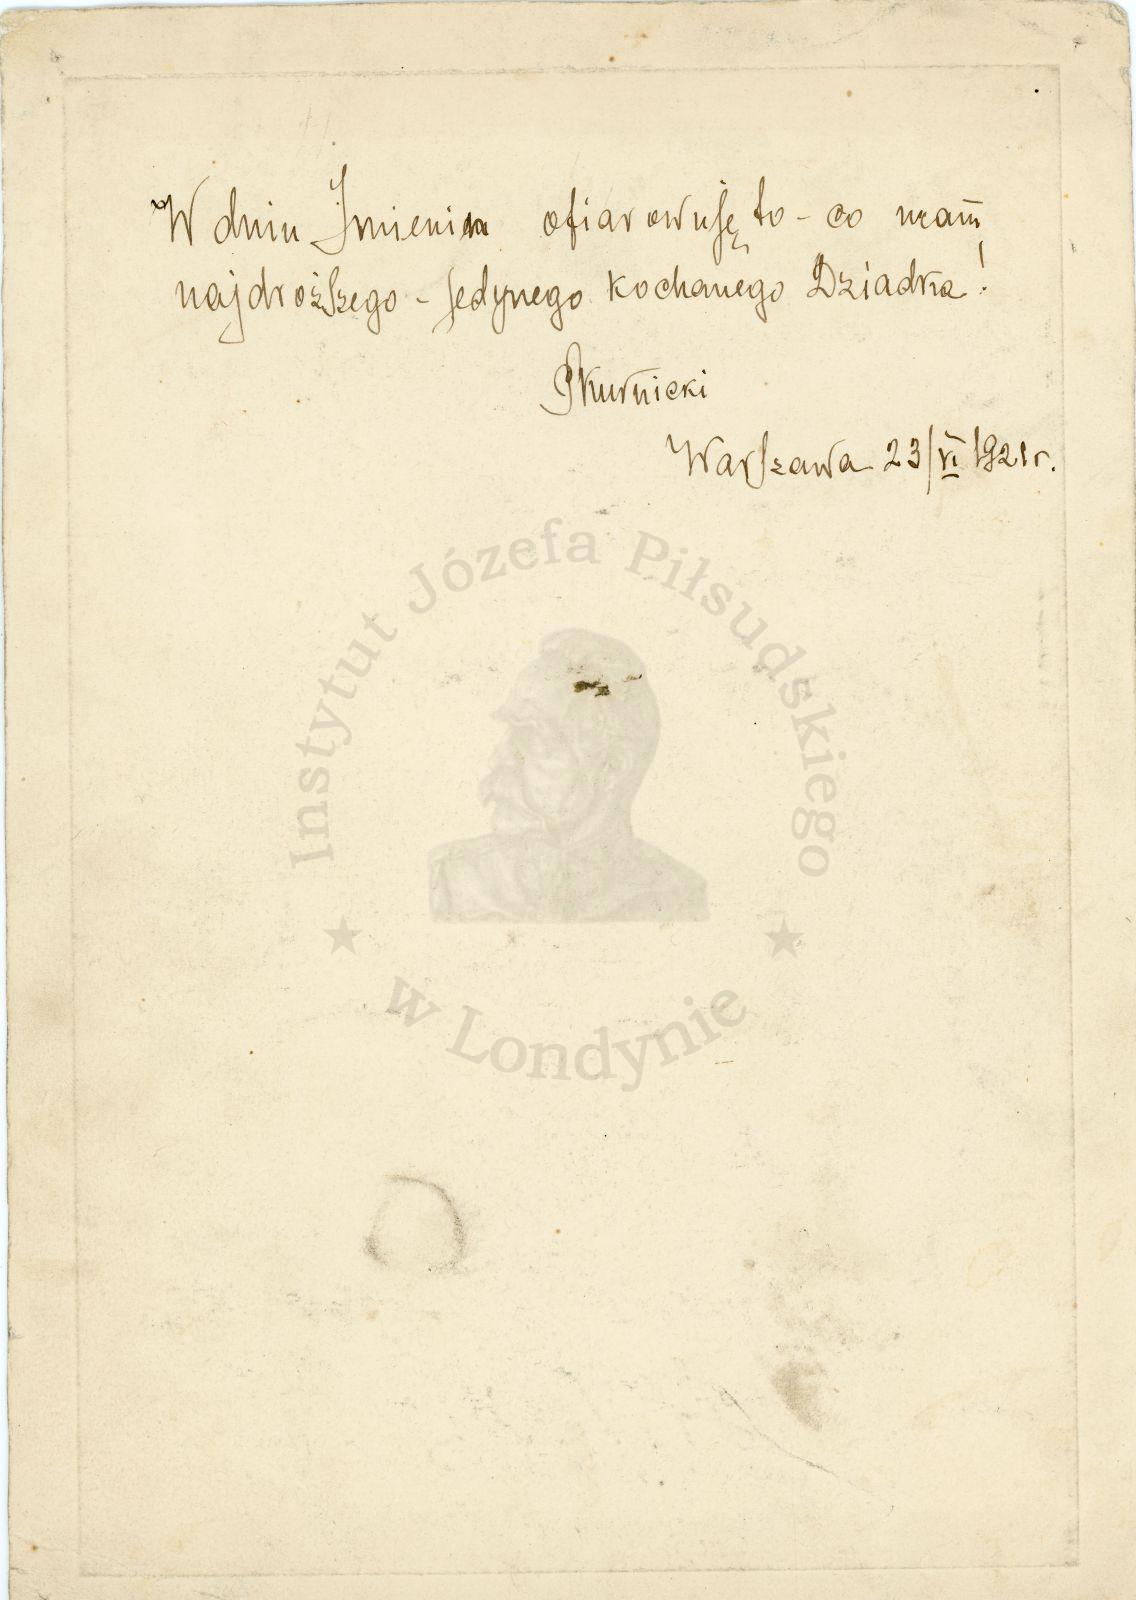 W dniu Imienin ofiarowuję to - co mam
najdroższego - jedynego kochanego Dziadka!
Warszawa 23/VI 1921 r.
Instytut Józefa Piłsudskiego
w Londynie